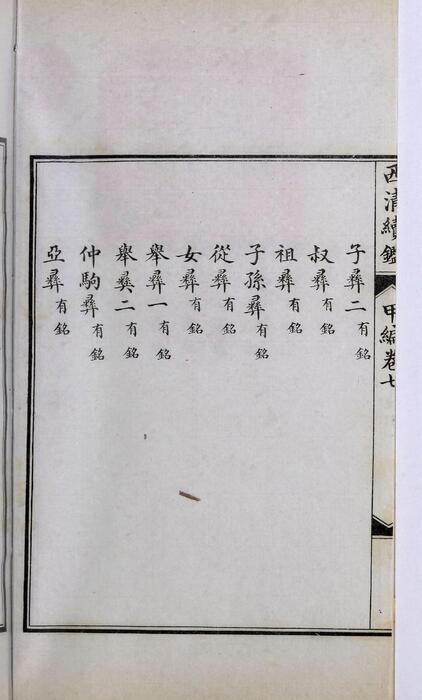 西清續鑑 甲編卷七
子彝二有銘
叔彝有銘
祖彝有銘
子孫彝有銘
從彝有銘
女彝有銘
舉彝一有銘
舉彝二有銘
仲駒彝有銘
亞彝有銘